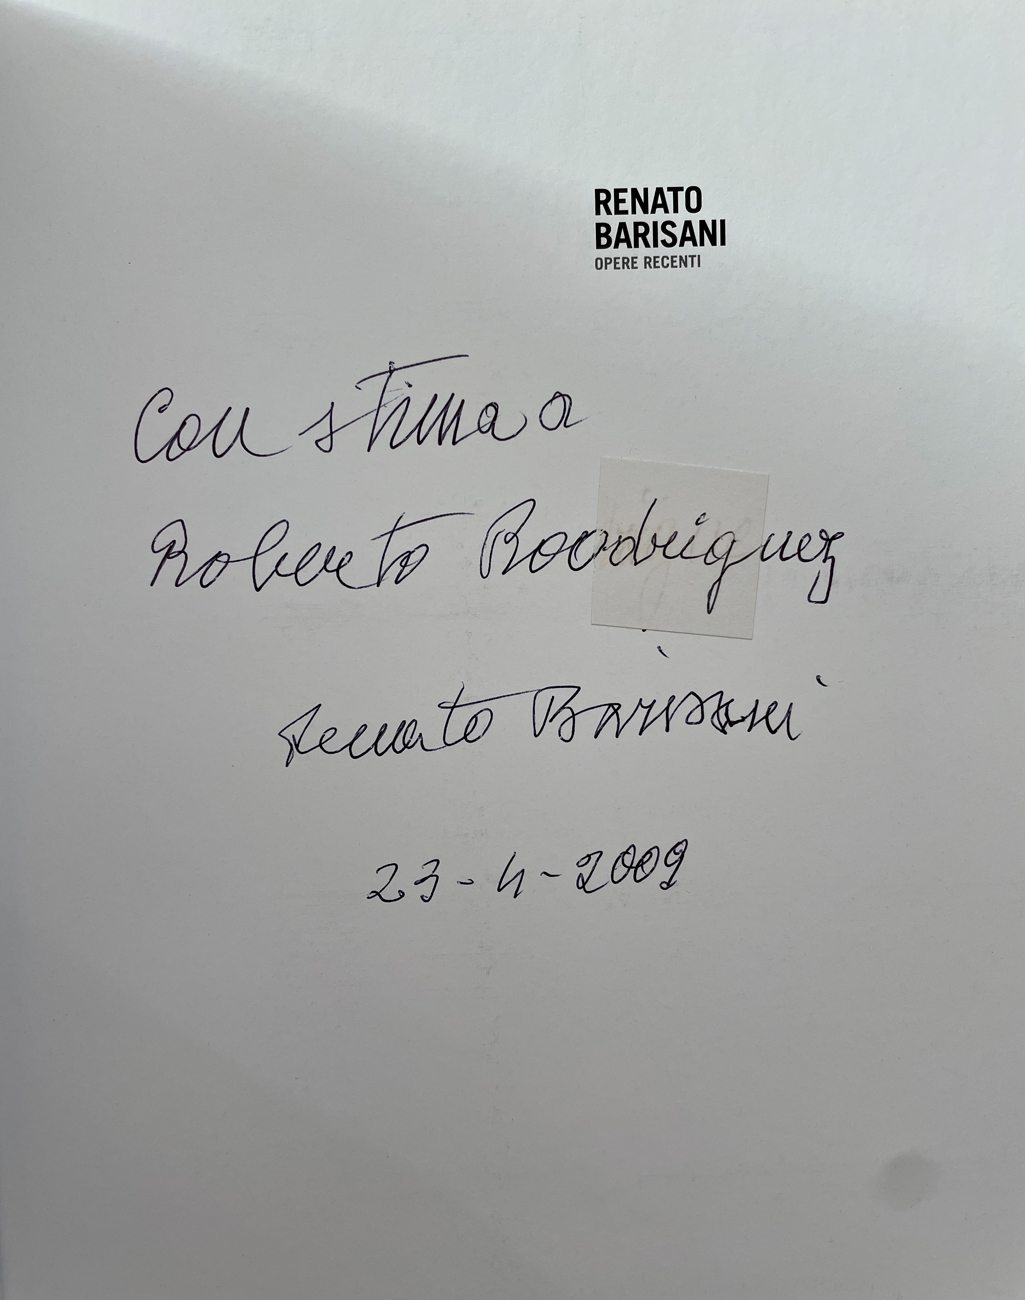 RENATO
BARISANI
OPERE RECENTI
Con stima a
Roberto Roodriguez
Renato Barisani
23-4-2009